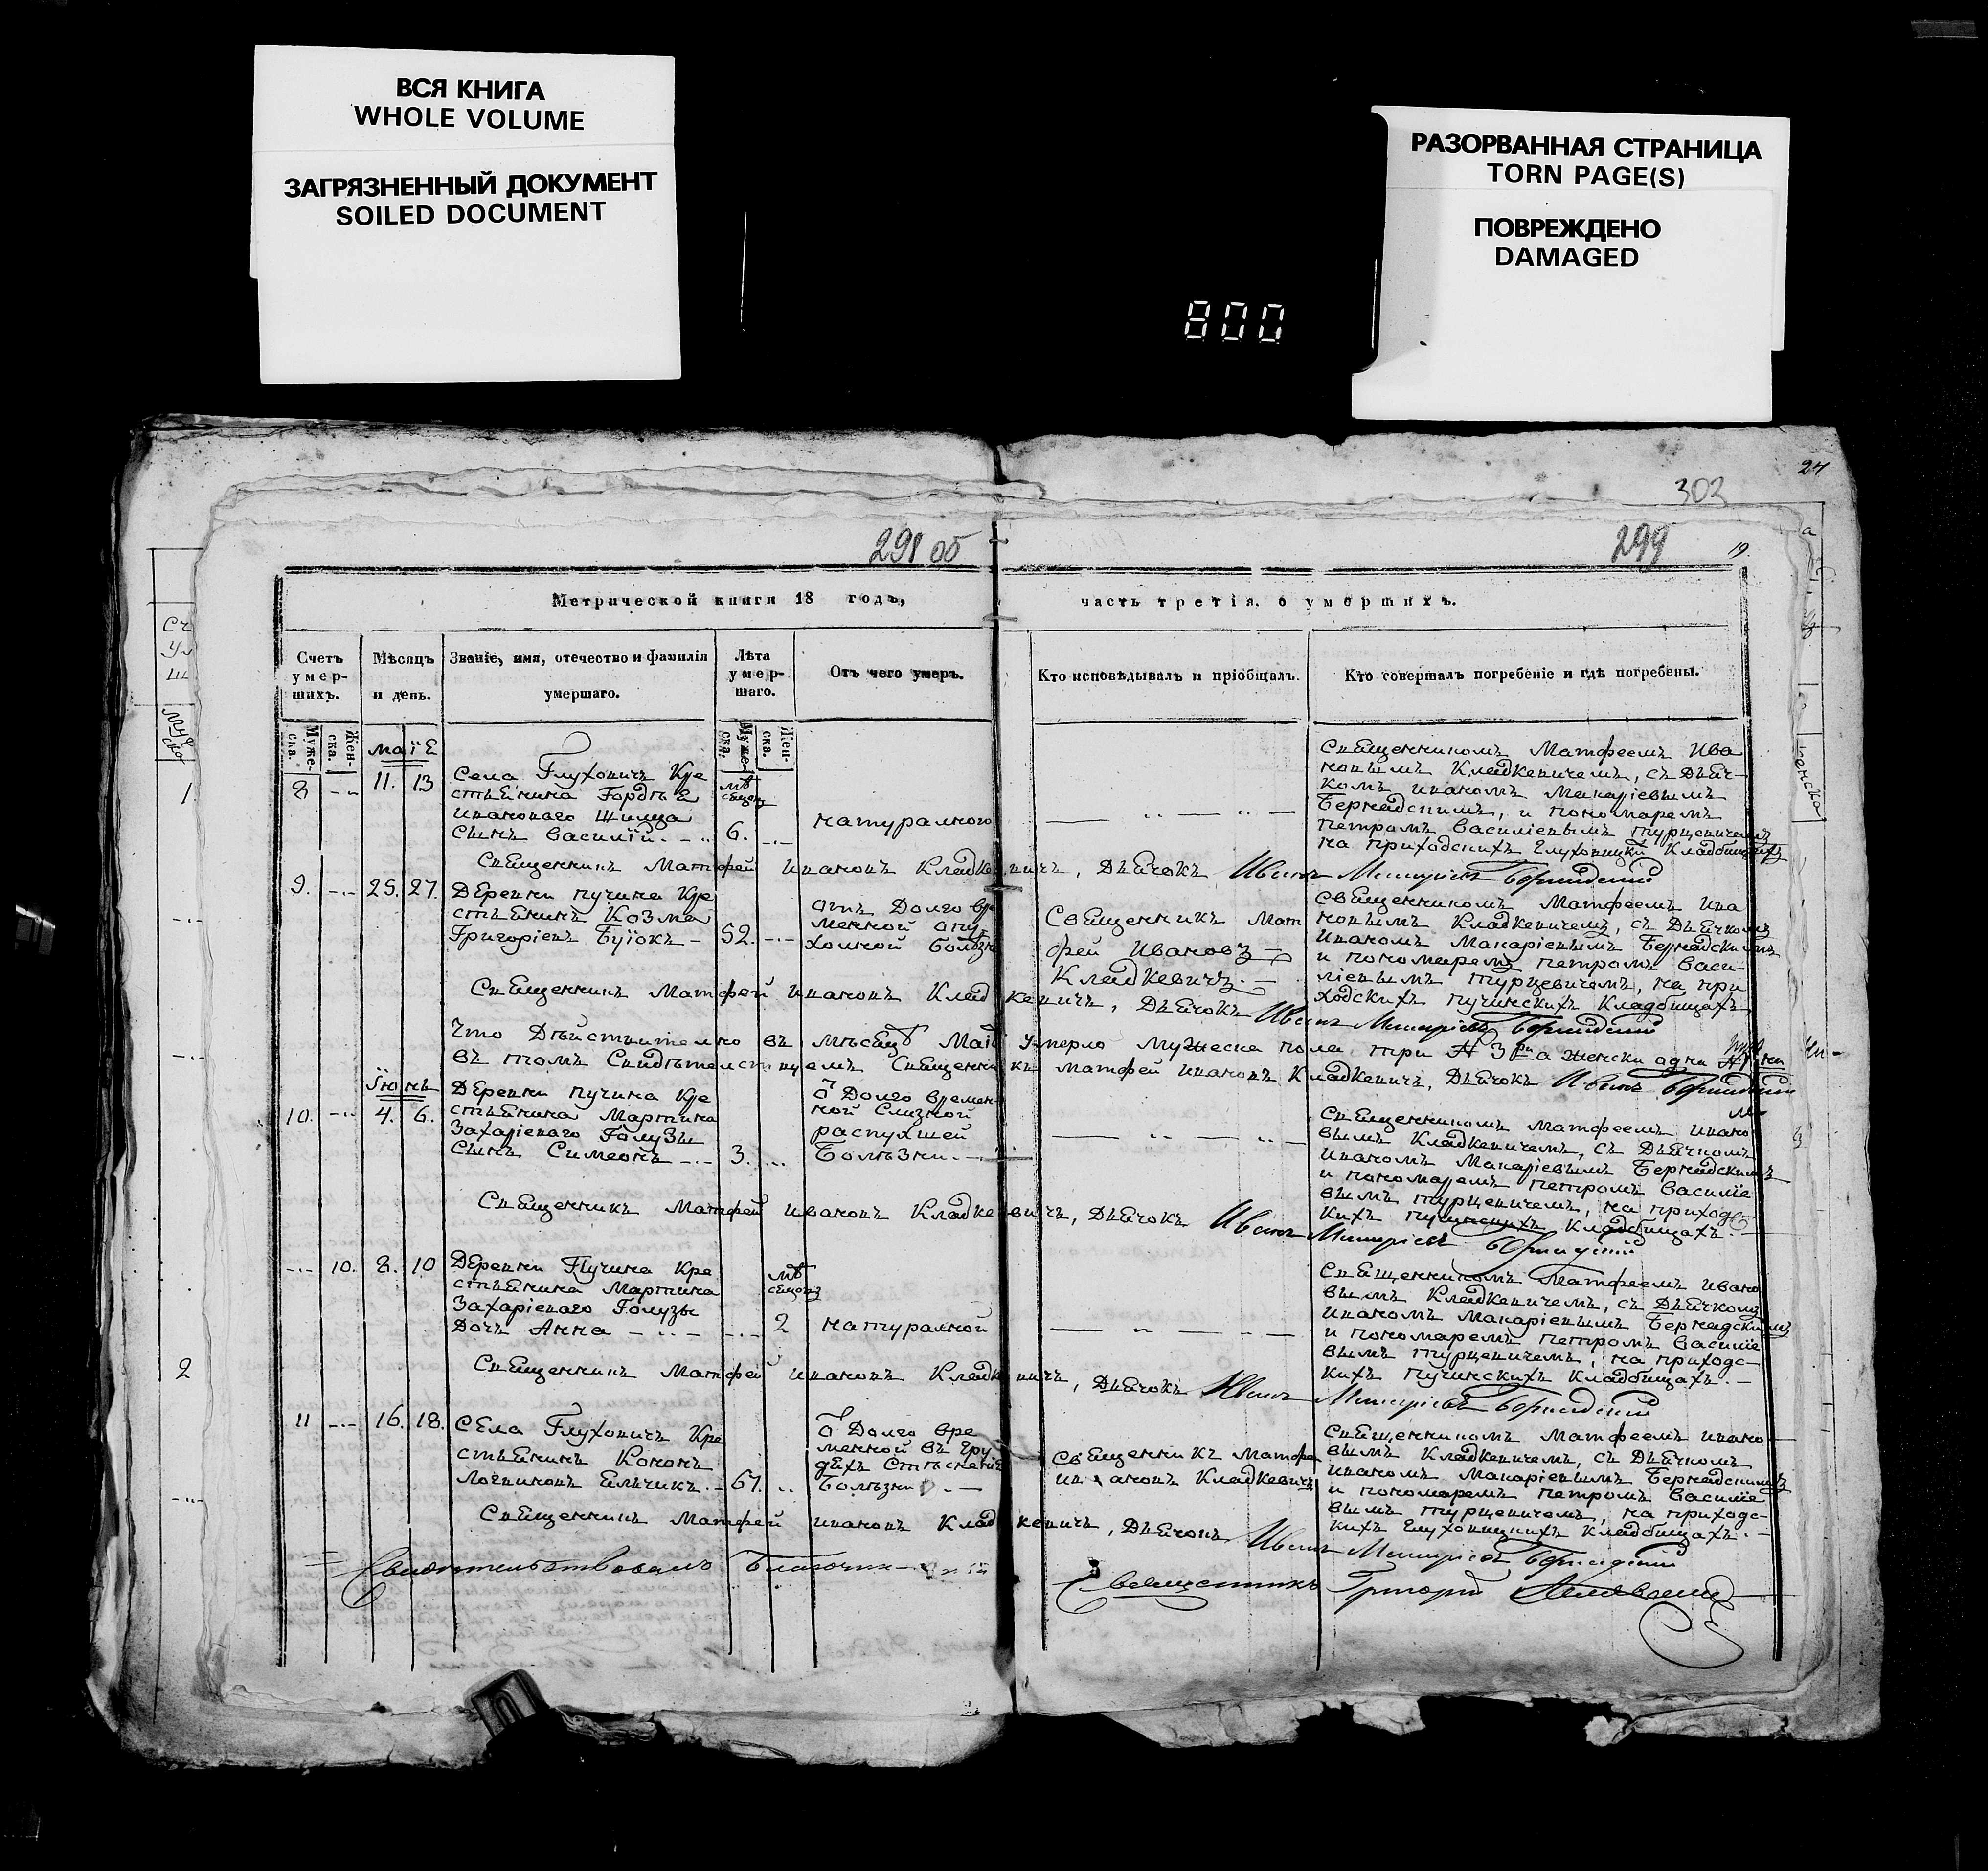 ВСЯ КНИГА
WHOLE VOLUME
ЗАГРЯЗНЕННЫЙ ДОКУМЕНТ
SOILED DOCUMENT
РАЗОРВАННАЯ СТРАНИЦА
TORN PAGE(S)
ПОВРЕЖДЕНО
DAMAGED
800
24
303
298 об
299
19.
Метрической книги 18 годъ,
часть третія, о умершихъ.
Счетъ умер-шихъ.
Мѣсяцъ и день.
Званіе, имя, отечество и фамилія умершаго.
Лѣта умер-шаго.
Отъ чего умеръ.
Кто исповѣдывалъ и пріобщалъ.
Кто совершалъ погребеніе и гдѣ погребены.
Муже-ска.
Жен-ска.
Муже-ска.
Жен-ска.
маіѣ
8 11. 13
Села Глуховичъ Кре
стьянина Гордѣя
Ивановаго Шилца
сынъ Василій
мѣсяцъ
6.
натуралного
Священникомъ Матфеемъ Ива
новымъ Кладкевичемъ, съ Дьяч-
комъ Иваномъ Макаріевымъ
Бернадскимъ, и пономаремъ
Петромъ Василіевымъ Турцевичемъ
на приходскихъ Глуховицкихъ Кладбищахъ
Священникъ Матфей Ивановъ Кладкевичъ, Дьячокъ Иванъ Макаріевъ Бернадскій
9. 25. 27.
Деревни Пучина Кре
стьянинъ Козма
Григоріевъ Буіокъ
52.
отъ Долго вре
менной опу
холной болѣзн
Священникъ Мат
фей Ивановъ
Кладкевичъ.
Священникомъ Матфеемъ Ива
новымъ Кладкевичемъ, съ Дьячкомъ
Иваномъ Макаріевымъ Бернадскимъ
и пономаремъ Петромъ Васи-
ліевымъ Турцевичемъ, на при
ходскихъ Пучинскихъ Кладбищахъ
Священникъ Матфей Ивановъ Кладкевичъ, Дьячокъ Иванъ Макаріевъ Бернадскій
Что Дѣйствително въ мѣсяцѣ Маіѣ умерло Мужеска пола три 3
въ томъ Свидѣтелствуемъ Священникъ Матфей Ивановъ Кладкевичъ, Дьячокъ Иванъ Бернадскій
Іюнь
10. 4. 6.
Деревни Пучина Кре
стьянина Мартина
Захаріеваго Голузы
сынъ Симеонъ
3.
Долго времен
ной Слизной
распухшей
Болѣзни.
Священникомъ Матфеемъ Ивано
вымъ Кладкевичемъ, съ Дьячкомъ
Иваномъ Макаріевымъ Бернадскимъ
и пономаремъ Петромъ Василіе
вымъ Турцевичемъ, на приходс
кихъ Пучинскихъ Кладбищахъ.
Священникъ Матфей Ивановъ Кладкевичъ, Дьячокъ Иванъ Макаріевъ Бернадскій
10. 8. 10
Деревни Пучина Кре
стьянина Мартина
Захаріеваго Голузы
Дочь Анна
2
натуралной
Священникомъ Матфеемъ Ивано
вымъ Кладкевичемъ, съ Дьячкомъ
Иваномъ Макаріевымъ Бернадскимъ
и пономаремъ Петромъ Василіе
вымъ Турцевичемъ, на приходс-
кихъ Пучинскихъ Кладбищахъ.
Священникъ Матфей Ивановъ Кладкевичъ, Дьячокъ Иванъ Макаріевъ Бернадскій
11 16. 18.
Села Глуховичъ Кре
стьянинъ Кононъ
Логвиновъ Ельчикъ.
67.
Долго вре
менной въ гру
дѣхъ Стѣсненіе
Болѣзни
Священникъ Матфе
Ивановъ Кладкевичъ
Священникомъ Матфеемъ Ивано-
вымъ Кладкевичемъ, съ Дьячкомъ
Иваномъ Макаріевымъ Бернадскимъ
и пономаремъ Петромъ Василіе
вымъ Турцевичемъ, на приходс-
кихъ Глуховицкихъ Кладбищахъ.
Священникъ Матфей Ивановъ Кладкевичъ, Дьячокъ Иванъ Макаріевъ Бернадскій
Свидѣтельствовалъ Священникъ Григорій